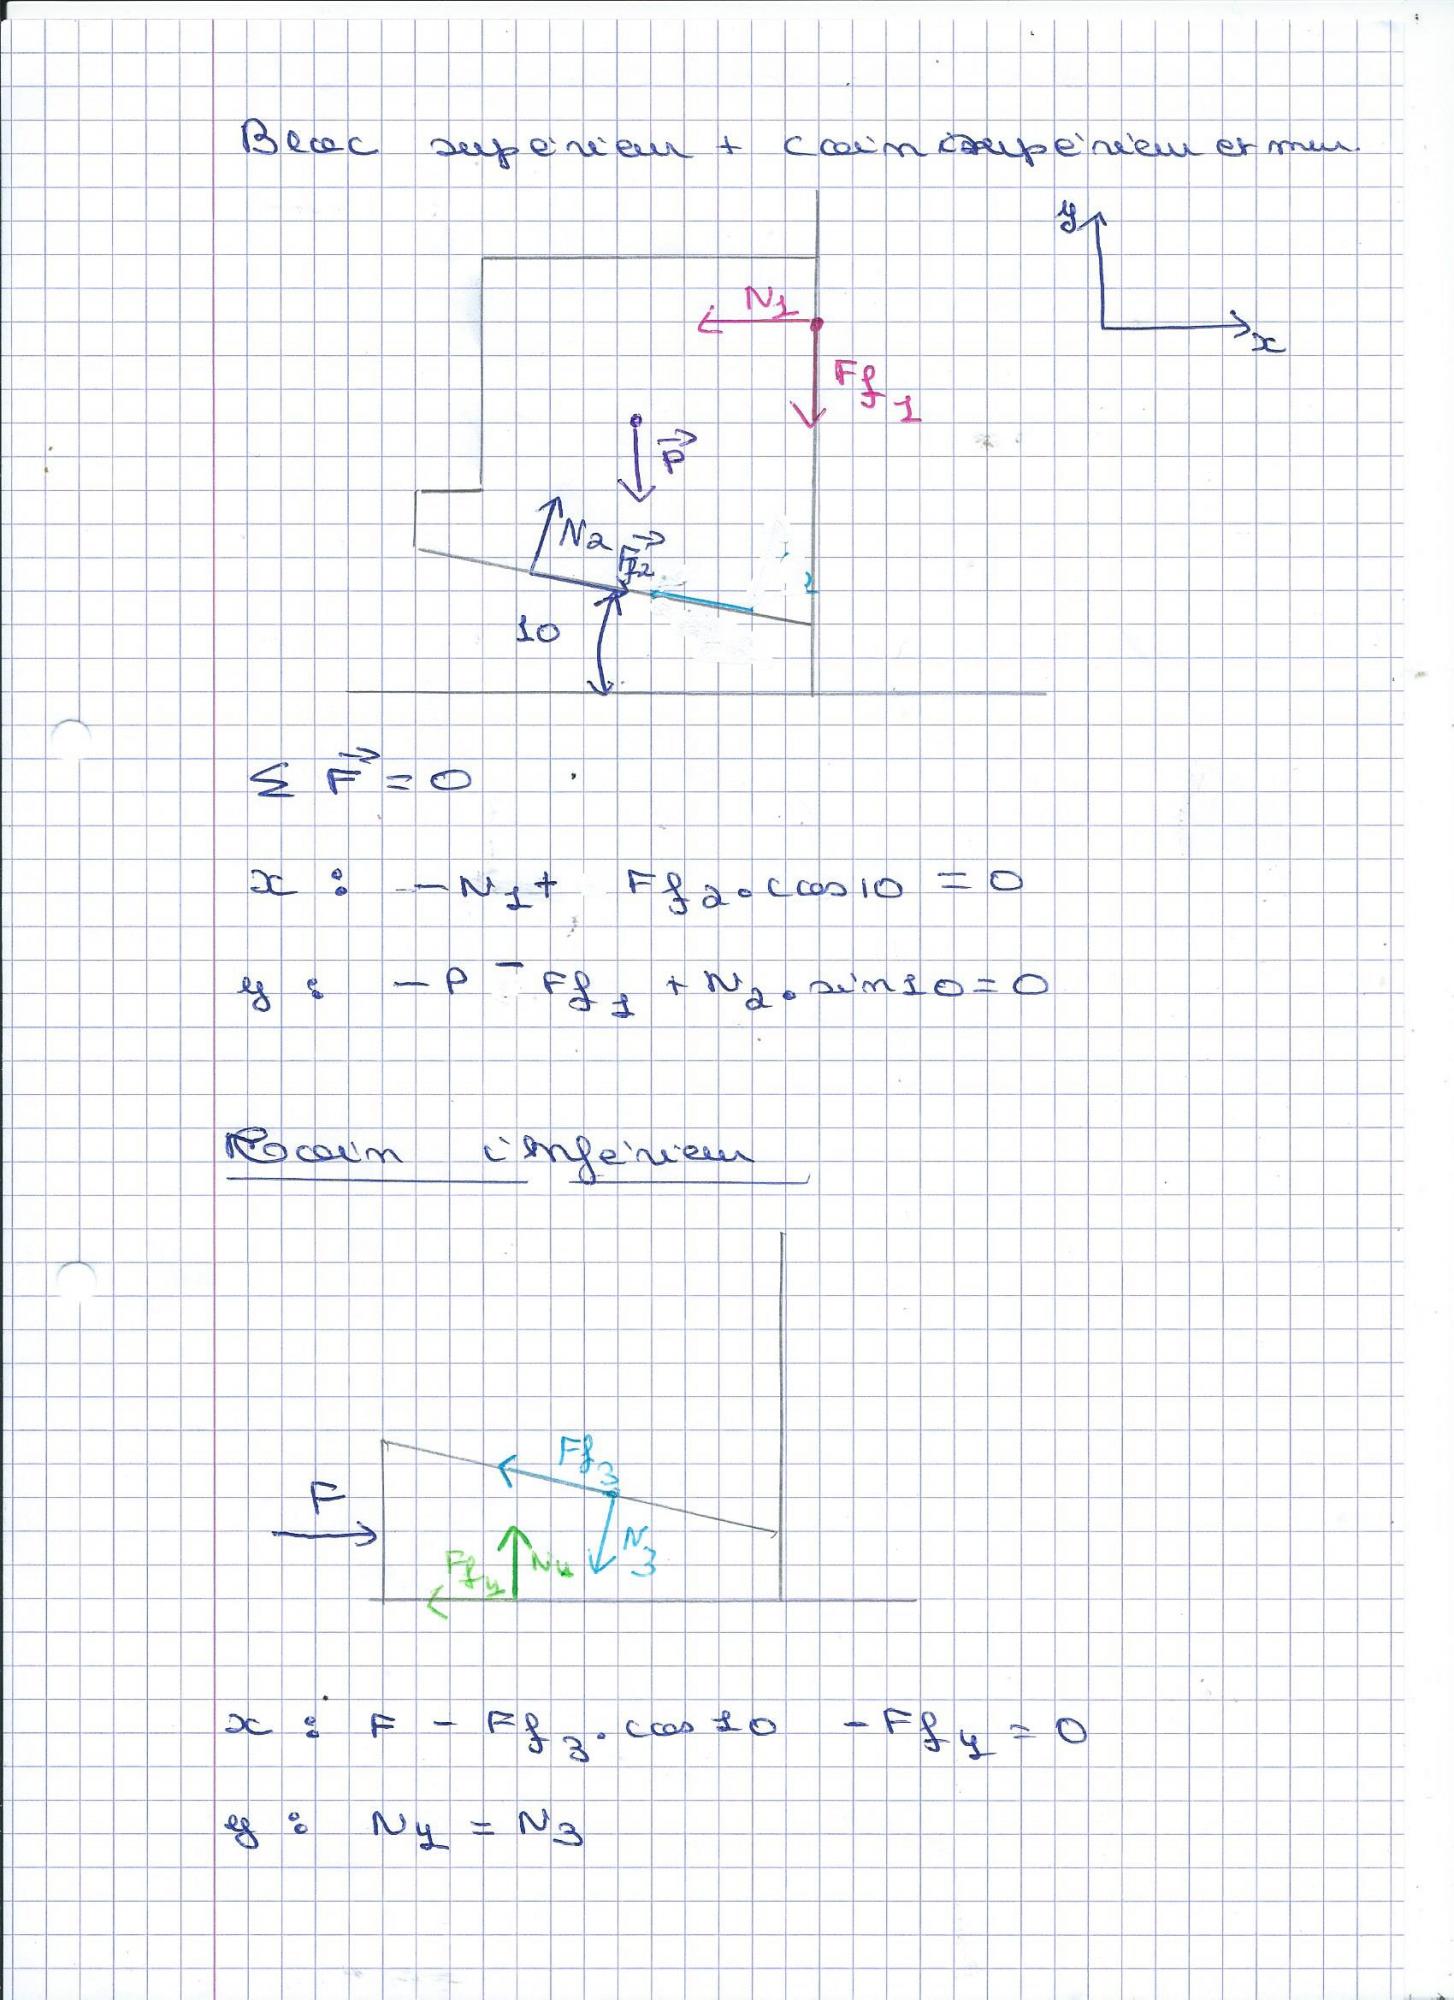 Bloc supérieur + coin supérieur et mur.
y
x
N1
Ff1
P
N2
Ff2
10
Σ F = 0
x : - N1 + Ff2 . cos 10 = 0
y : - P - Ff1 + N2 . sin 10 = 0
coin inférieur
Ff3
F
N3
Ff4
N4
x : F - Ff3 . cos 10 - Ff4 = 0
y : N4 = N3